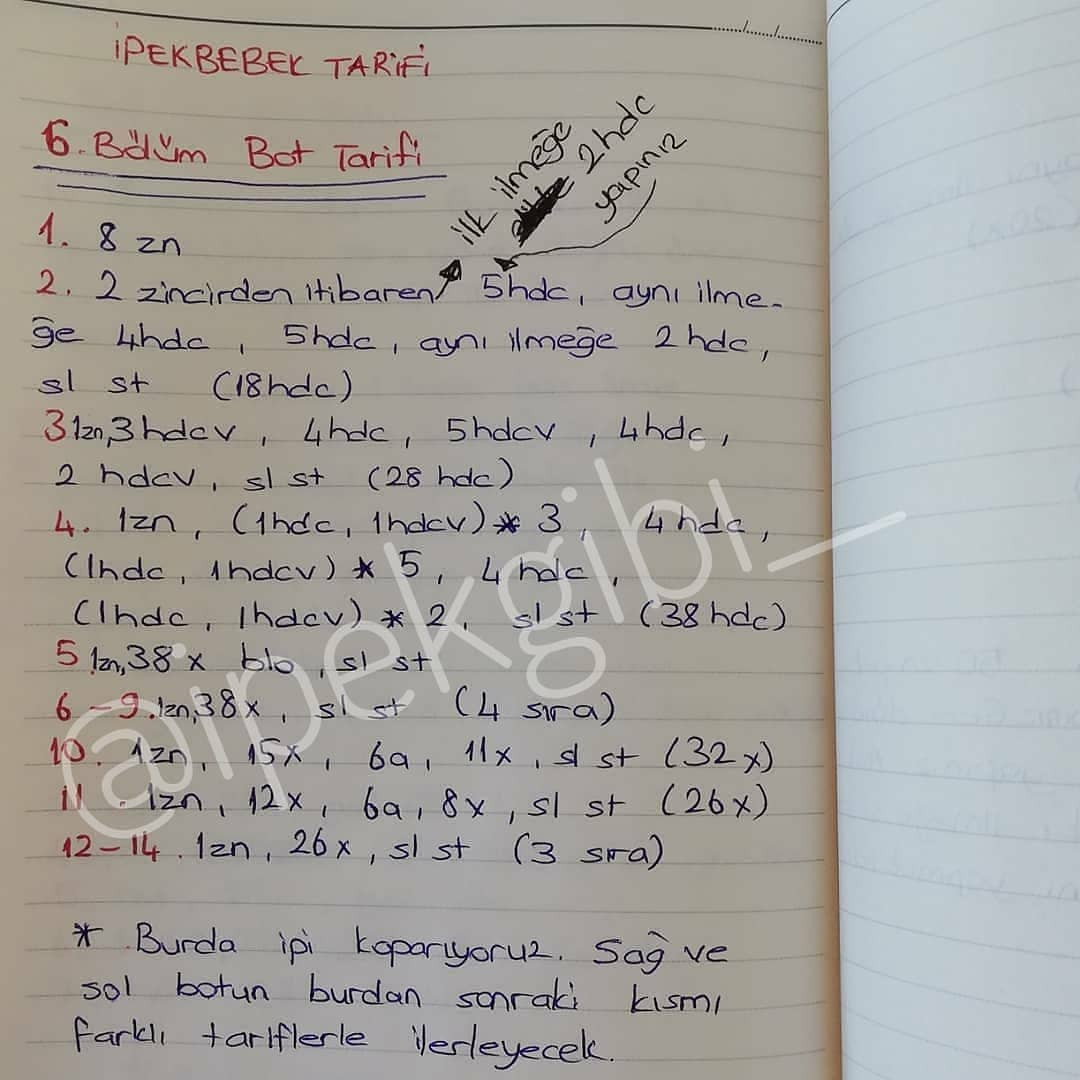 İPEKBEBEK TARİFİ
6. Bölüm Bot Tarifi
ilk ilmeğe
2 hdc
yapınız
1. 8 zn
2. 2 zincirden itibaren 5hdc, aynı ilme-
ğe 4hdc, 5hdc, aynı ilmeğe 2 hdc,
sl st (18hdc)
3 1zn,3hdcv, 4hdc, 5hdcv, 4hdc,
2 hdcv, sl st (28 hdc)
4. 1zn, (1hdc, 1hdcv)* 3, 4 hdc,
(1hdc, 1hdcv) * 5, 4 hdc,
(1hdc, 1hdcv) * 2, sl st (38 hdc)
5 1zn,38 x blo, sl st
6-9.1zn,38x, sl st (4 sıra)
10. 1zn, 15x, 6a, 11x, sl st (32x)
11. 1zn, 12x, 6a, 8x, sl st (26x)
12-14. 1zn, 26x, sl st (3 sıra)
* Burda ipi koparıyoruz. Sağ ve
sol botun burdan sonraki kısmı
farklı tariflerle ilerleyecek.
@ipekgibi_